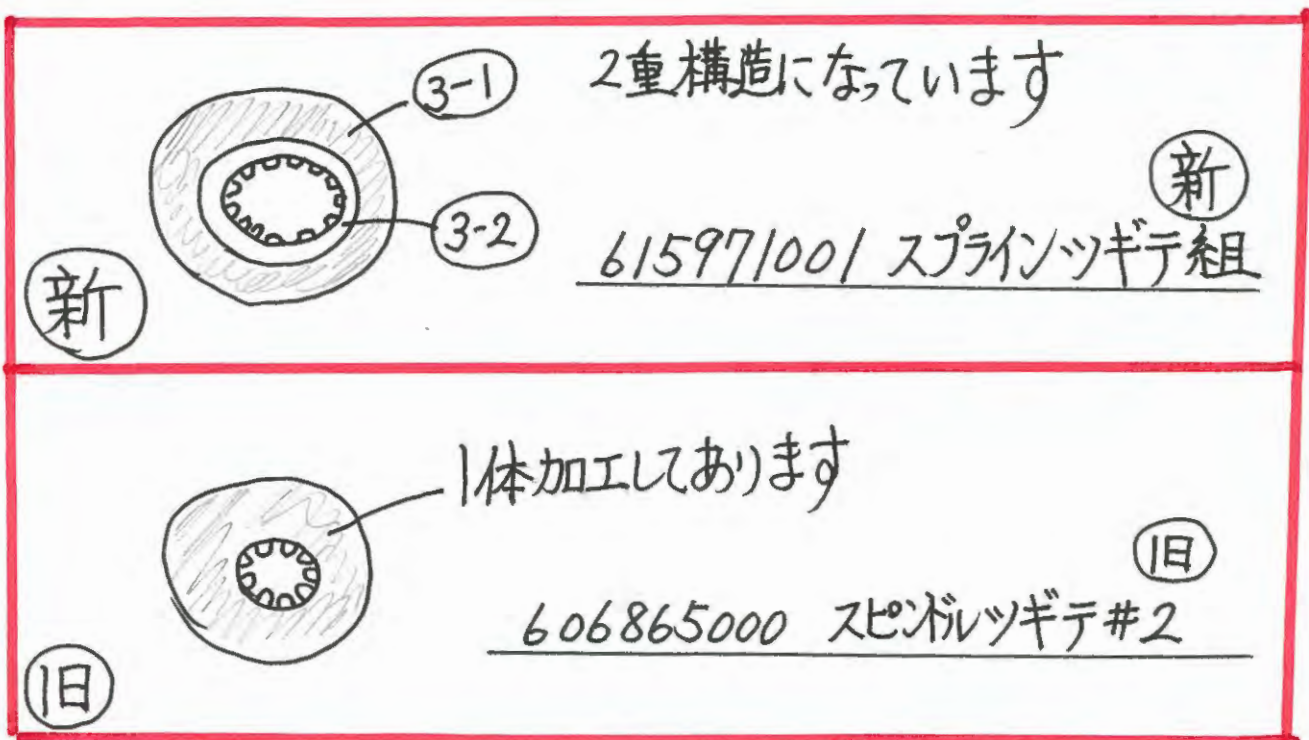 3-1
2重構造になっています
新
3-2
615971001 スプラインツギテ組
新
1体加工してあります
旧
606865000 スピンドルツギテ#2
旧